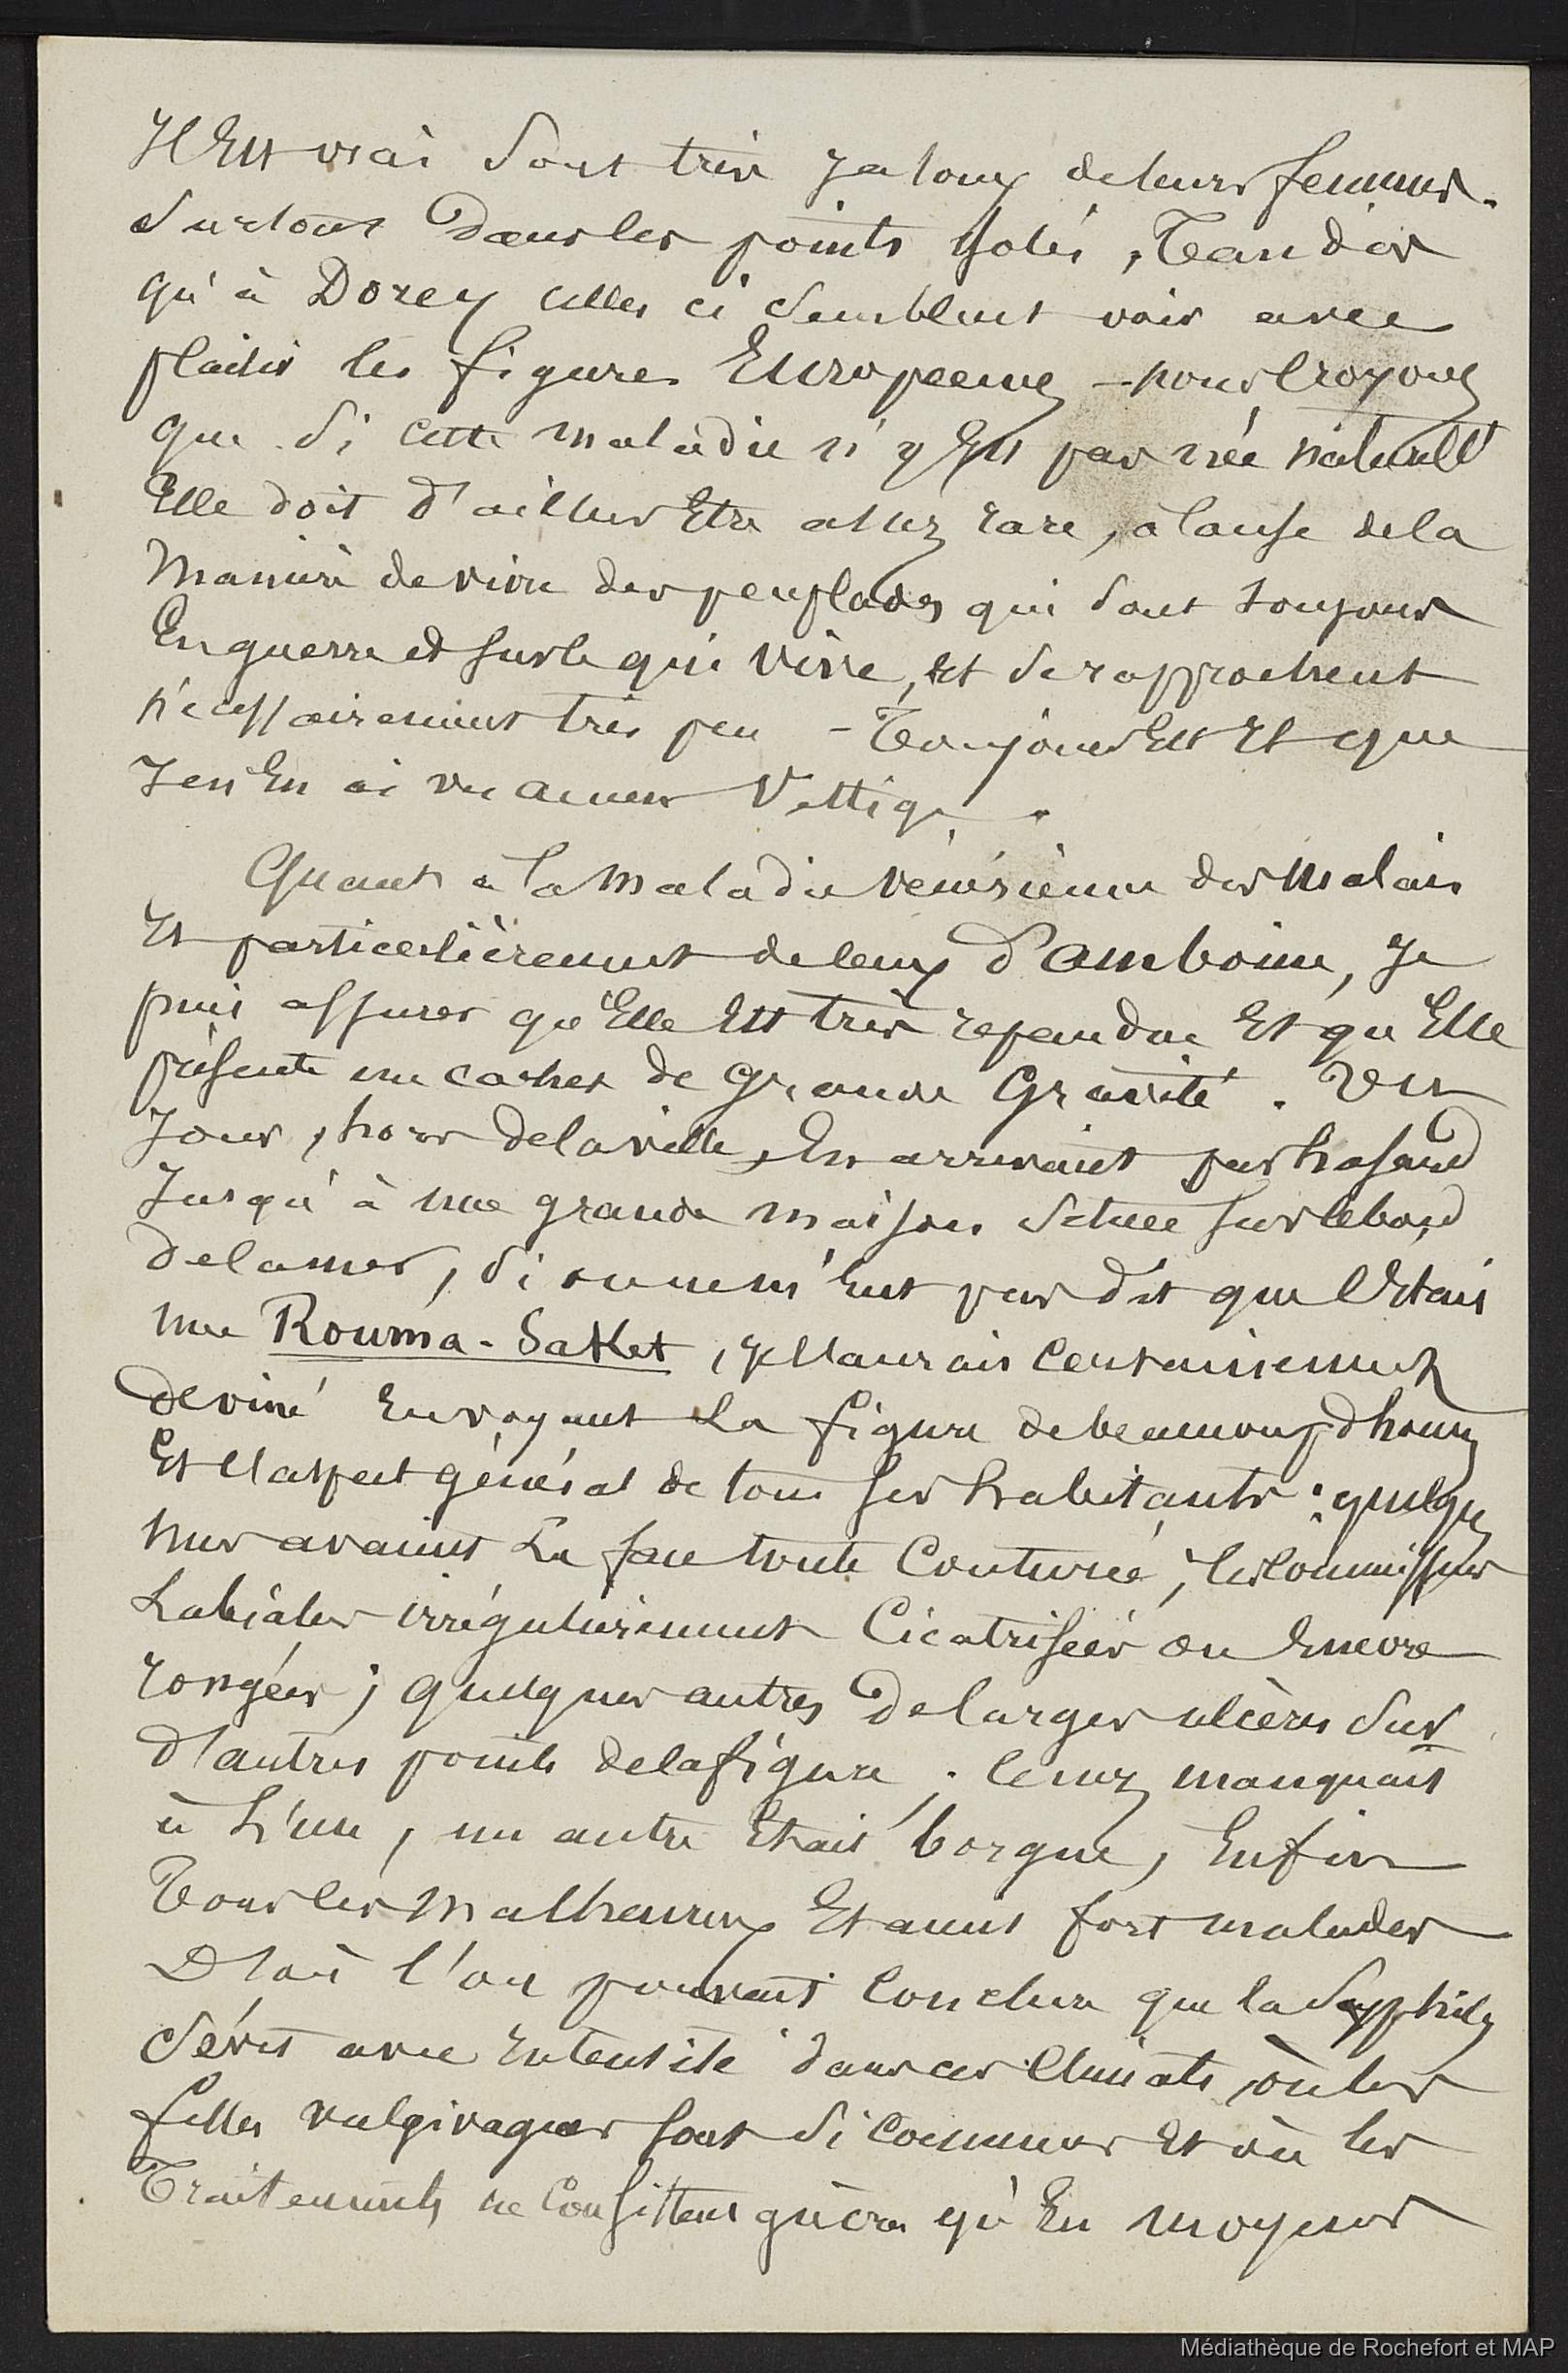 Il Est vrai sont très jaloux de leurs femmes.
Surtout dans les points isolés, Tandis
qu'à Dorey celles ci semblent voir avec
plaisir les figures Européenes – nous croyons
que si cette maladie n'y Est pas née naturellt
Elle doit d'ailleurs Etre assez rare, à cause de la
maniere de vivre des peuplades qui sont toujours
En guerre et sur le qui vive, et se rapprochent
nécessairement très peu – Toujours Est Il que
Je n'En ai vu aucun Vestige.
Quant à la maladie vénérienne des Malais
Et particulièrement de ceux d'amboine, Je
puis assurer qu'Elle Est très repandue Et qu'Elle
présente un cachet de grande Gravité. Un
Jour, hors de la ville, En arrivant par hasard
Jusqu'à une grande maison située sur le bord
de la mer, si on ne m'eut pas dit que c'Etait
une Rouma-Saket, je l'aurais certainement
deviné En voyant la figure de beaucoup d'hommes
Et l'aspect général de tous ses habitants : quelques
uns avaient la face toute couturée, les commissures
Labiales irrégulierement Cicatrisées ou Encore
rongées ; quelques autres de larges ulcères sur
d'autres points de la figure ; le nez manquait
à l'un, un autre Etait borgne, Enfin
Tous les malheureux Etaient fort malades
D'où l'on pouvait conclure que la Syphilis
sévit avec intensité dans ces Climats, où les
filles vulgivagues sont si communes Et où les
Traitements ne Consistent guères qu'En moyens
Médiathèque de Rochefort et MAP